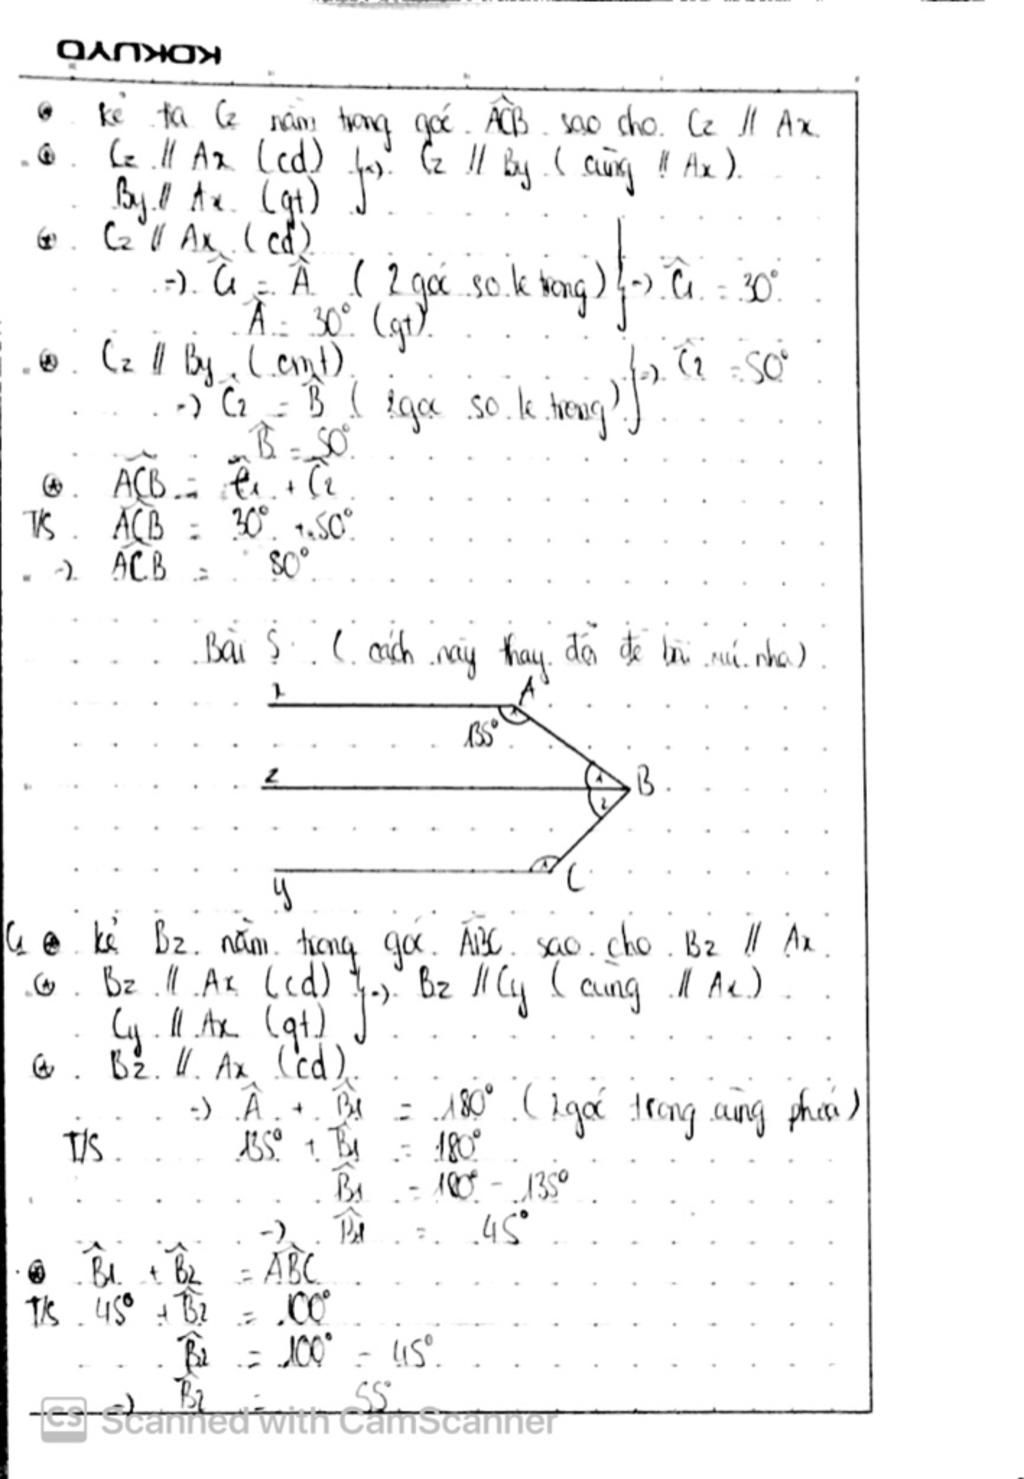 KOKUYO
Kẻ tia Cz nằm trong góc ACB sao cho Cz // Ax
Cz // Ax (cd) } => Cz // By (cùng // Ax)
By // Ax (gt)
Cz // Ax (cd)
=> Ĉ1 = Â (2 góc so le trong) } => Ĉ1 = 30°
Â = 30° (gt)
Cz // By (cmt) } => Ĉ2 = 50°
=> Ĉ2 = B̂ (2 góc so le trong)
B̂ = 50°
ACB = Ĉ1 + Ĉ2
T/S ACB = 30° + 50°
=> ACB = 80°
Bài 5 (cách này thay đổi đề bài xíu nha)
x A
135° 1
z 1 B
2
1
y C
Kẻ Bz nằm trong góc ABC sao cho Bz // Ax
Bz // Ax (cd) } => Bz // Cy (cùng // Ax)
Cy // Ax (gt)
Bz // Ax (cd)
=> Â + B̂1 = 180° (2 góc trong cùng phía)
T/S 135° + B̂1 = 180°
B̂1 = 180° - 135°
=> B̂1 = 45°
B̂1 + B̂2 = ABC
T/S 45° + B̂2 = 100°
B̂2 = 100° - 45°
=> B̂2 = 55°
CS Scanned with CamScanner